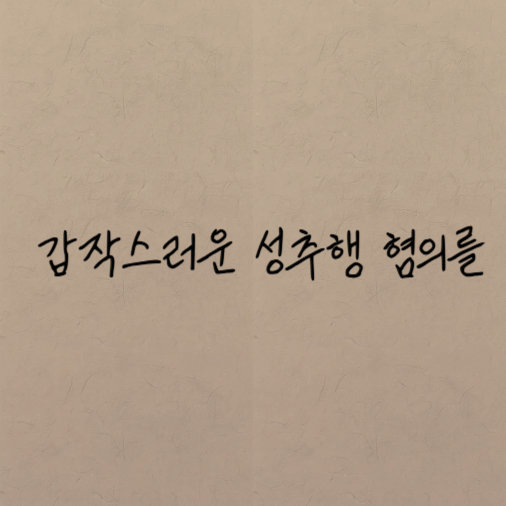 갑작스러운 성추행 혐의를